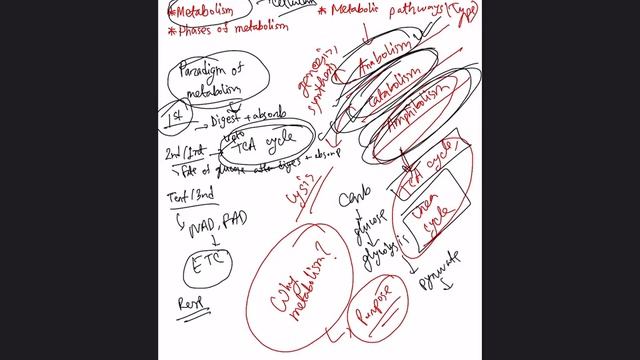 *Metabolism
*Phases of metabolism
* Metabolic pathways (Type)
Paradigm of
metabolism
1st
→ Digest + absorb
upto
2nd/
TCA cycle
Fate of glucose after diges + absorp
/3rd
NAD, FAD
ETC
genesis,
synthesis
Anabolism
Catabolism
Amphibolism
lysis
TCA cycle,
Urea
cycle
Carb
glucose
glycolysis
pyruvate
Why
metabolism?
Purpose